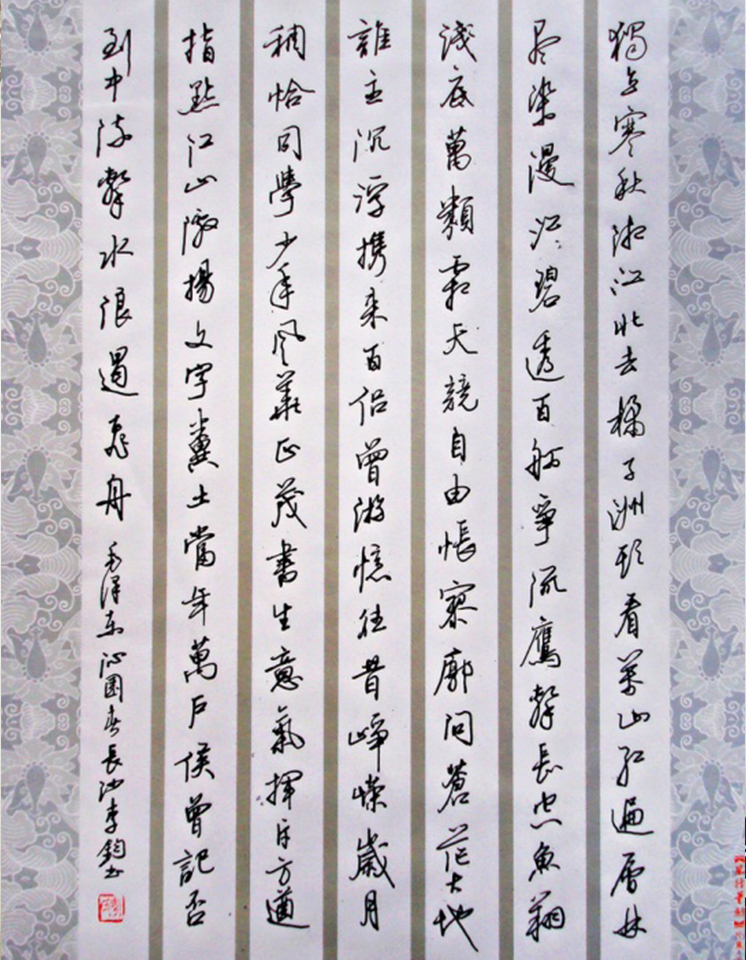 獨立寒秋湘江北去橘子洲头看萬山红遍層林
尽染漫江碧透百舸爭流鷹擊长空魚翔
淺底萬類霜天競自由悵寥廓問蒼茫大地
誰主沉浮携来百侣曾游憶往昔崢嶸歲月
稠恰同學少年风華正茂書生意氣揮斥方遒
指點江山激揚文字糞土當年萬户侯曾記否
到中流擊水浪遏飛舟 毛泽东沁園春長沙李鈞书